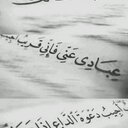 عِبَادِي عَنِّي فَإِنِّي قَرِيبٌ
أُجِيبُ دَعْوَةَ الدَّاعِ إِذَا